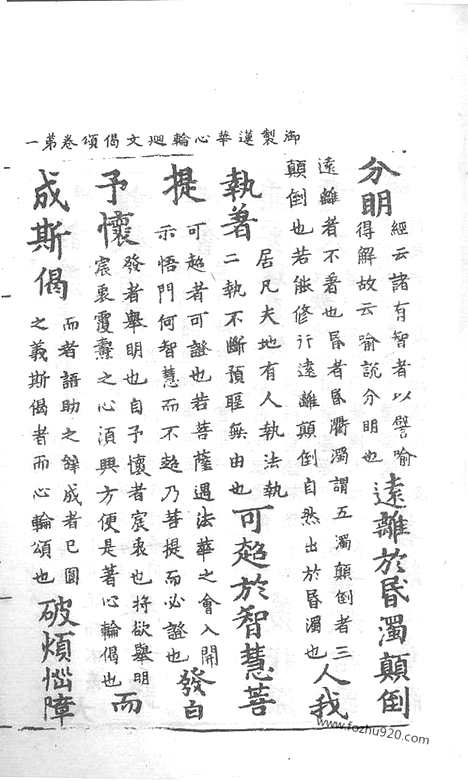 御製蓮華心輪迴文偈頌卷第一
分明
經云諸有智者以譬喻
得解故云喻說分明也
遠離於昏濁顛倒
遠離者不著也昏者昏衢濁謂五濁顛倒者三
顛倒也若能修行遠離顛倒自然出於昏濁也
人我
執著
居凡夫地有人執法執
二執不斷預聖無由也
可超於智慧菩
提
可超者可證也若菩薩遇法華之會入開
示悟門何智慧而不超乃菩提而必證也
發自
予懷
發者舉明也自予懷者宸衷也將欲舉明
宸衷覆燾之心須興方便是著心輪偈也
而
成斯偈
而者語助之辭成者已圓
之義斯偈者而心輪頌也
破煩惱障
www.fozhu920.com